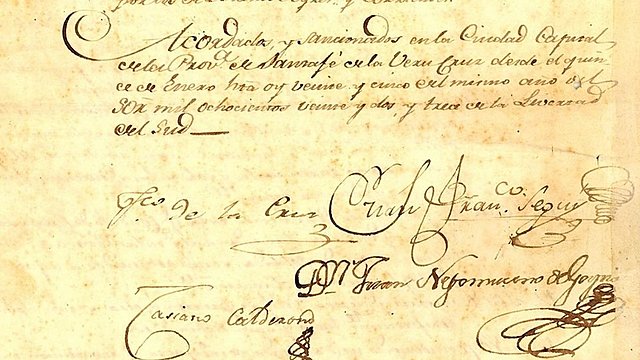 Acordados, y sancionados en la Ciudad Capital
de la Prov.ª de Santafé de la Vera Cruz desde el quin
ce de Enero hta oy veinte y cinco del mismo año del
Sor mil ochocientos veinte y dos, y trece de la Livertad
del Sud
Fco. de la Cruz Juan Fran.co Seguí
Dn. Juan Nepomuceno de Goytia
Casiano Calderon